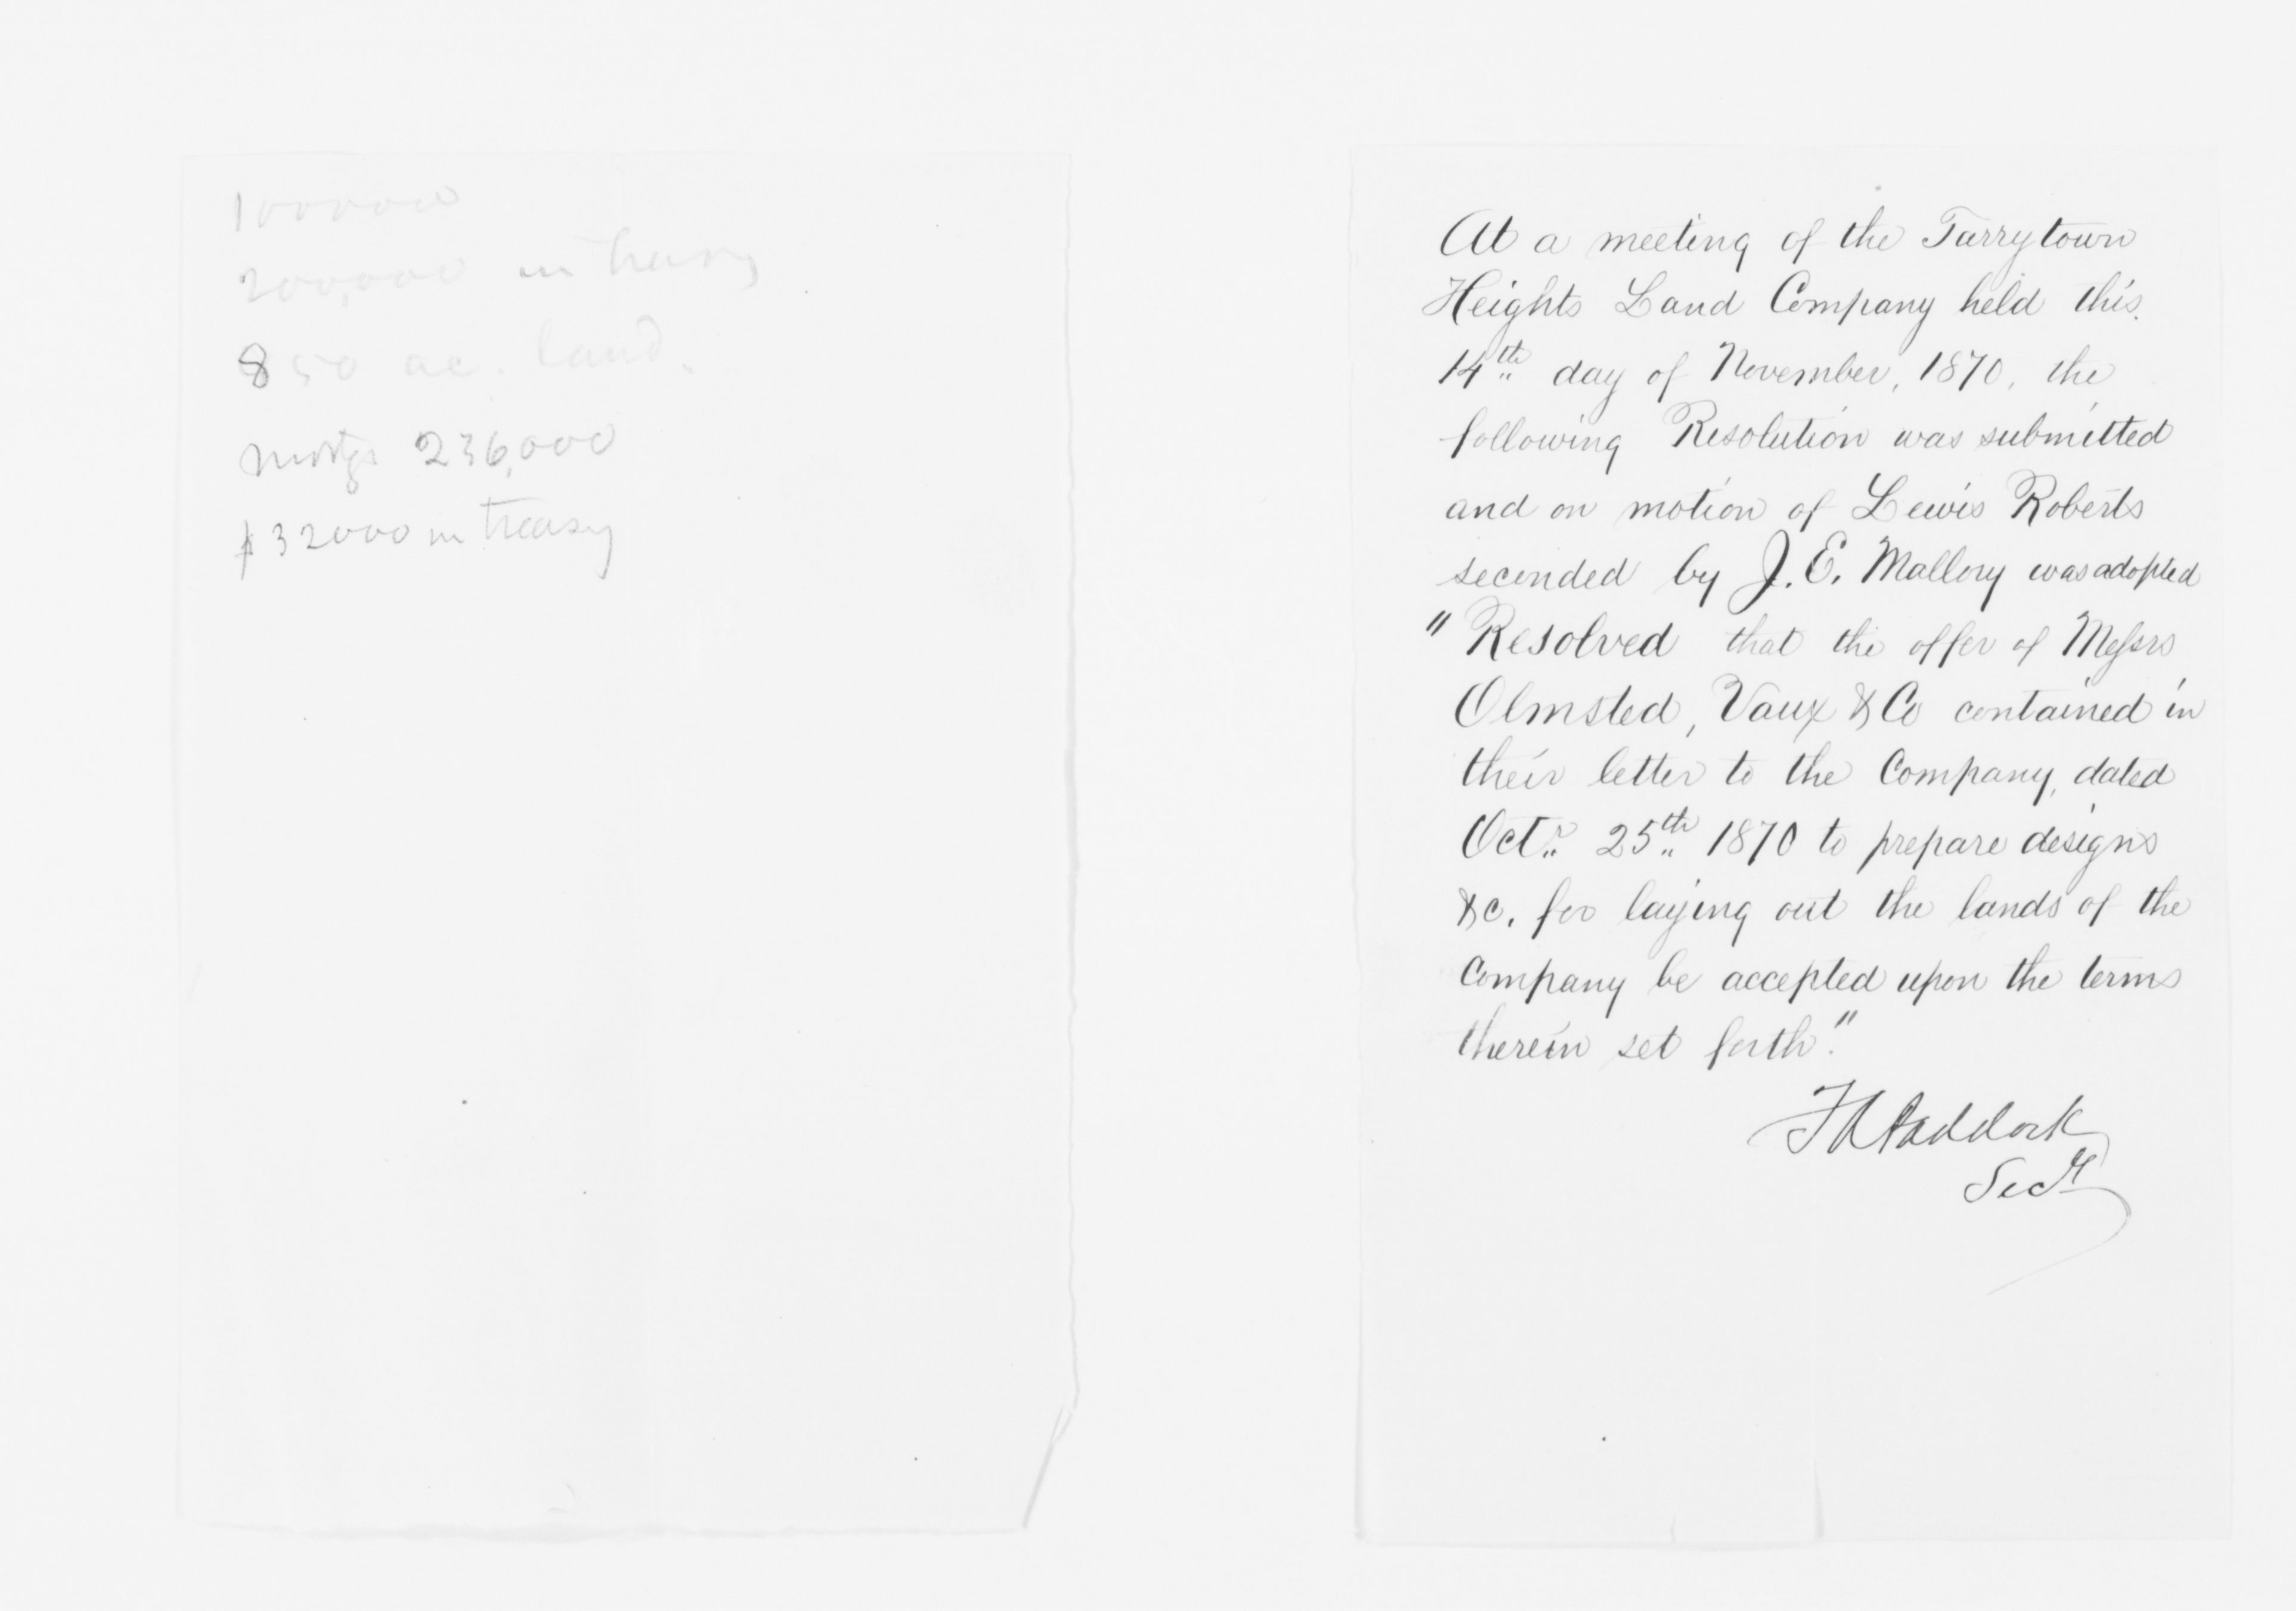 1000000
200,000 in treasy
850 ac. land.
Mortgs 236,000
$32000 in treasy
At a meeting of the Tarrytown
Heights Land Company held this
14th day of November, 1870, the
following Resolution was submitted
and on motion of Lewis Roberts
seconded by J. E. Mallory was adopted
"Resolved that the offer of Messrs
Olmsted, Vaux & Co contained in
their letter to the Company, dated
Octr 25th 1870 to prepare designs
&c. for laying out the lands of the
Company be accepted upon the terms
therein set forth."
Paddock
Secy